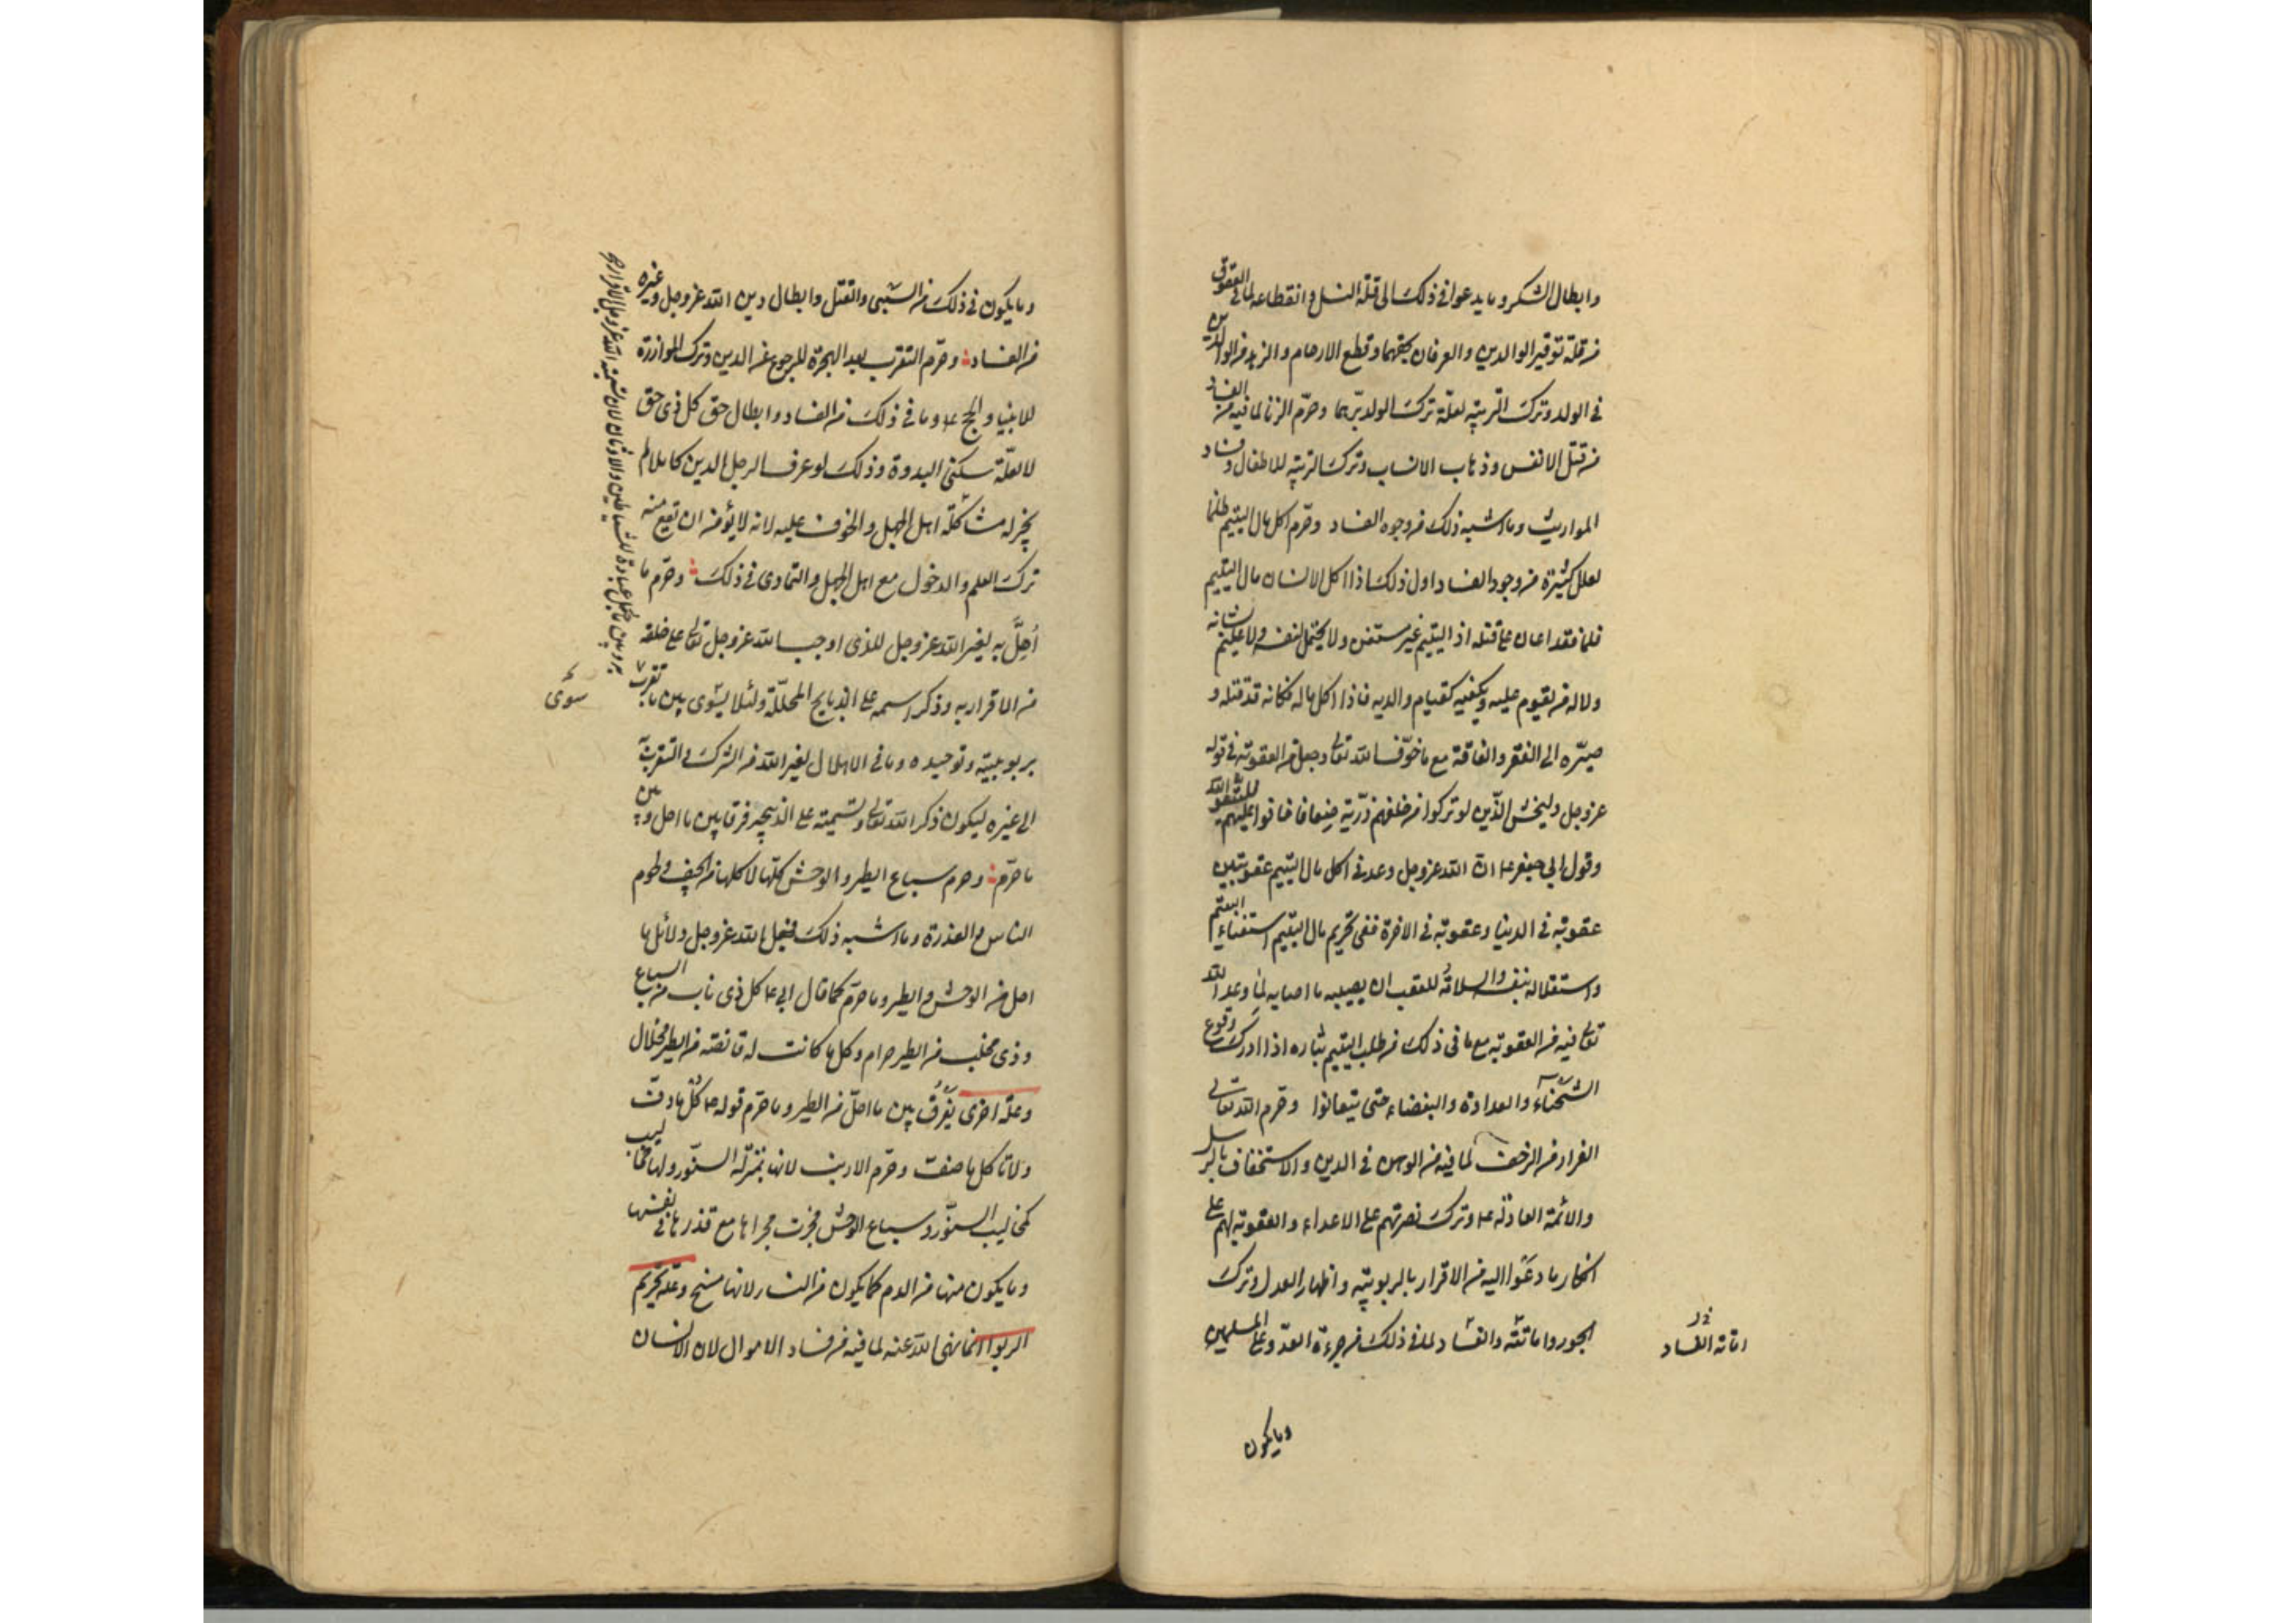 وابطال الشكر وما يدعوا في ذلك الى قلة النسل وانقطاعه لما في العقوق
من قلة توقير الوالدين والعرفان بحقهما وقطع الارحام والزهد من الوالدين
في الولد وترك التربية لعلّة ترك الولد برّهما وحرّم الزنا لما فيه من الفساد
من قتل الانفس وذهاب الانساب وترك التربية للاطفال وفساد
المواريث وما اشبه ذلك من وجوه الفساد وحرّم اكل مال اليتيم ظلما
لعلل كثيرة من وجوه الفساد اول ذلك اذا اكل الانسان مال اليتيم
ظلما فقد اعان على قتله اذ اليتيم غير مستغن ولا يحتمل لنفسه ولا عليم بشانه
ولا له من يقوم عليه ويكفيه كقيام والديه فاذا اكل ماله فكانه قد قتله و
صيّره الى الفقر والفاقة مع ما خوّف الله تعالى وجعل من العقوبة في قوله
عز وجل وليخش الذين لو تركوا من خلفهم ذرّية ضعافا خافوا عليهم فليتقوا الله
وقول ابي جعفر ع ان الله عز وجل وعد في اكل مال اليتيم عقوبتين
عقوبة في الدنيا وعقوبة في الاخرة ففي تحريم مال اليتيم استغناء اليتيم
واستقلاله بنفسه والسلامة للعقب ان يصيبه ما اصابه لما وعد الله
تعالى فيه من العقوبة مع ما في ذلك من طلب اليتيم بثاره اذا ادرك وقوع
الشحناء والعداوة والبغضاء حتى يتفانوا وحرم الله تعالى
الفرار من الزحف لما فيه من الوهن في الدين والاستخفاف بالرسل
والائمة العادلة ع وترك نصرتهم على الاعداء والعقوبة لهم على
انكار ما دعوا اليه من الاقرار بالربوبية واظهار العدل وترك
الجور واماتته والفساد لما في ذلك من جرءة العدو على المسلمين
اماتة الفساد
وما يكون
وما يكون في ذلك من السبي والقتل وابطال دين الله عز وجل وغيره
من الفساد وحرّم التعرب بعد الهجرة للرجوع عن الدين وترك الموازرة
للانبياء والحجج ع وما في ذلك من الفساد وابطال حق كل ذي حق
لا لعلّة سكنى البدوة وذلك لو عرف الرجل الدين كاملا لم
يجز له مشاكلة اهل الجهل والخوف عليه لانه لا يؤمن ان تقع منه
ترك العلم والدخول مع اهل الجهل والتمادى في ذلك وحرّم ما
أُهِلَّ به لغير الله عز وجل للذى اوجب الله عز وجل تعالى على خلقه
من الاقرار به وذكر اسمه على الذبايح المحلّلة ولئلا يسوى بين ما تقرب
سوى
بربوبيته وتوحيده وما في الاهلال لغير الله من الشرك والتقرب
الى غيره ليكون ذكر الله تعالى وتسميته على الذبيحة فرقا بين ما احل وبين
ما حرّم وحرم سباع الطير والوحش كلّها لاكلها من الجيف ولحوم
الناس والعذرة وما اشبه ذلك فجعل الله عز وجل دلائل ما
احل من الوحش والطير وما حرّم كما قال ابى ع كل ذى ناب من السباع
وذى مخلب من الطير حرام وكل ما كانت له قانصة من الطير فحلال
وعلّة اخرى يفرق بين ما احلّ من الطير وما حرّم قوله ع كل ما دفّ
ولا تاكل ما صفّ وحرّم الارنب لانها بمنزلة السنّور ولها مخاليب
كمخاليب السنّور وسباع الوحش فجرت مجراها مع قذرها في نفسها
وما يكون منها من الدم كما يكون من النساء لانها مسخ وعلّة تحريم
الربوا انما نهى الله عنه لما فيه من فساد الاموال لان الانسان